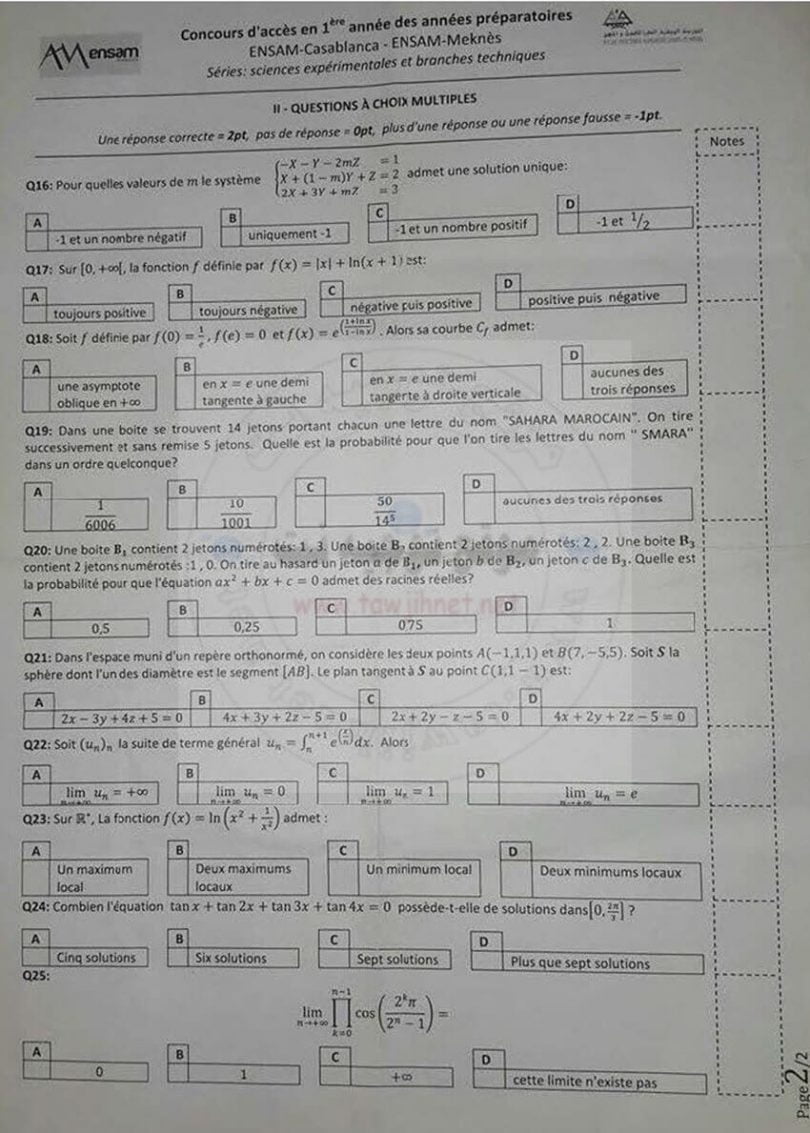 ensam
Concours d'accès en 1ère année des années préparatoires
ENSAM-Casablanca - ENSAM-Meknès
Séries: sciences expérimentales et branches techniques
II - QUESTIONS À CHOIX MULTIPLES
Une réponse correcte = 2pt, pas de réponse = 0pt, plus d'une réponse ou une réponse fausse = -1pt.
Notes
Q16: Pour quelles valeurs de m le système { -X - Y - 2mZ = 1
X + (1 - m)Y + Z = 2
2X + 3Y + mZ = 3 admet une solution unique:
A -1 et un nombre négatif
B uniquement -1
C -1 et un nombre positif
D -1 et 1/2
Q17: Sur [0, +∞[, la fonction f définie par f(x) = |x| + ln(x + 1) est:
A toujours positive
B toujours négative
C négative puis positive
D positive puis négative
Q18: Soit f définie par f(0) = 1/e, f(e) = 0 et f(x) = e^((1+ln x)/(1-ln x)). Alors sa courbe Cf admet:
A une asymptote
oblique en +∞
B en x = e une demi
tangente à gauche
C en x = e une demi
tangente à droite verticale
D aucunes des
trois réponses
Q19: Dans une boite se trouvent 14 jetons portant chacun une lettre du nom "SAHARA MAROCAIN". On tire
successivement et sans remise 5 jetons. Quelle est la probabilité pour que l'on tire les lettres du nom " SMARA"
dans un ordre quelconque?
A 1/6006
B 10/1001
C 50/14^5
D aucunes des trois réponses
Q20: Une boite B1 contient 2 jetons numérotés: 1 , 3. Une boite B2 contient 2 jetons numérotés: 2 , 2. Une boite B3
contient 2 jetons numérotés :1 , 0. On tire au hasard un jeton a de B1, un jeton b de B2, un jeton c de B3. Quelle est
la probabilité pour que l'équation ax² + bx + c = 0 admet des racines réelles?
www.tawjihnet.net
A 0,5
B 0,25
C 0,75
D 1
Q21: Dans l'espace muni d'un repère orthonormé, on considère les deux points A(-1,1,1) et B(7,-5,5). Soit S la
sphère dont l'un des diamètre est le segment [AB]. Le plan tangent à S au point C(1,1 - 1) est:
A 2x - 3y + 4z + 5 = 0
B 4x + 3y + 2z - 5 = 0
C 2x + 2y - z - 5 = 0
D 4x + 2y + 2z - 5 = 0
Q22: Soit (un)n la suite de terme général un = ∫_n^(n+1) e^(x/n) dx. Alors
A lim n→+∞ un = +∞
B lim n→+∞ un = 0
C lim n→+∞ un = 1
D lim n→+∞ un = e
Q23: Sur ℝ*, La fonction f(x) = ln(x² + 1/x²) admet :
A Un maximum
local
B Deux maximums
locaux
C Un minimum local
D Deux minimums locaux
Q24: Combien l'équation tan x + tan 2x + tan 3x + tan 4x = 0 possède-t-elle de solutions dans[0, 2π/3] ?
A Cinq solutions
B Six solutions
C Sept solutions
D Plus que sept solutions
Q25:
lim n→+∞ ∏_(k=0)^(n-1) cos(2^k π / (2^n - 1)) =
A 0
B 1
C +∞
D cette limite n'existe pas
Page2/2